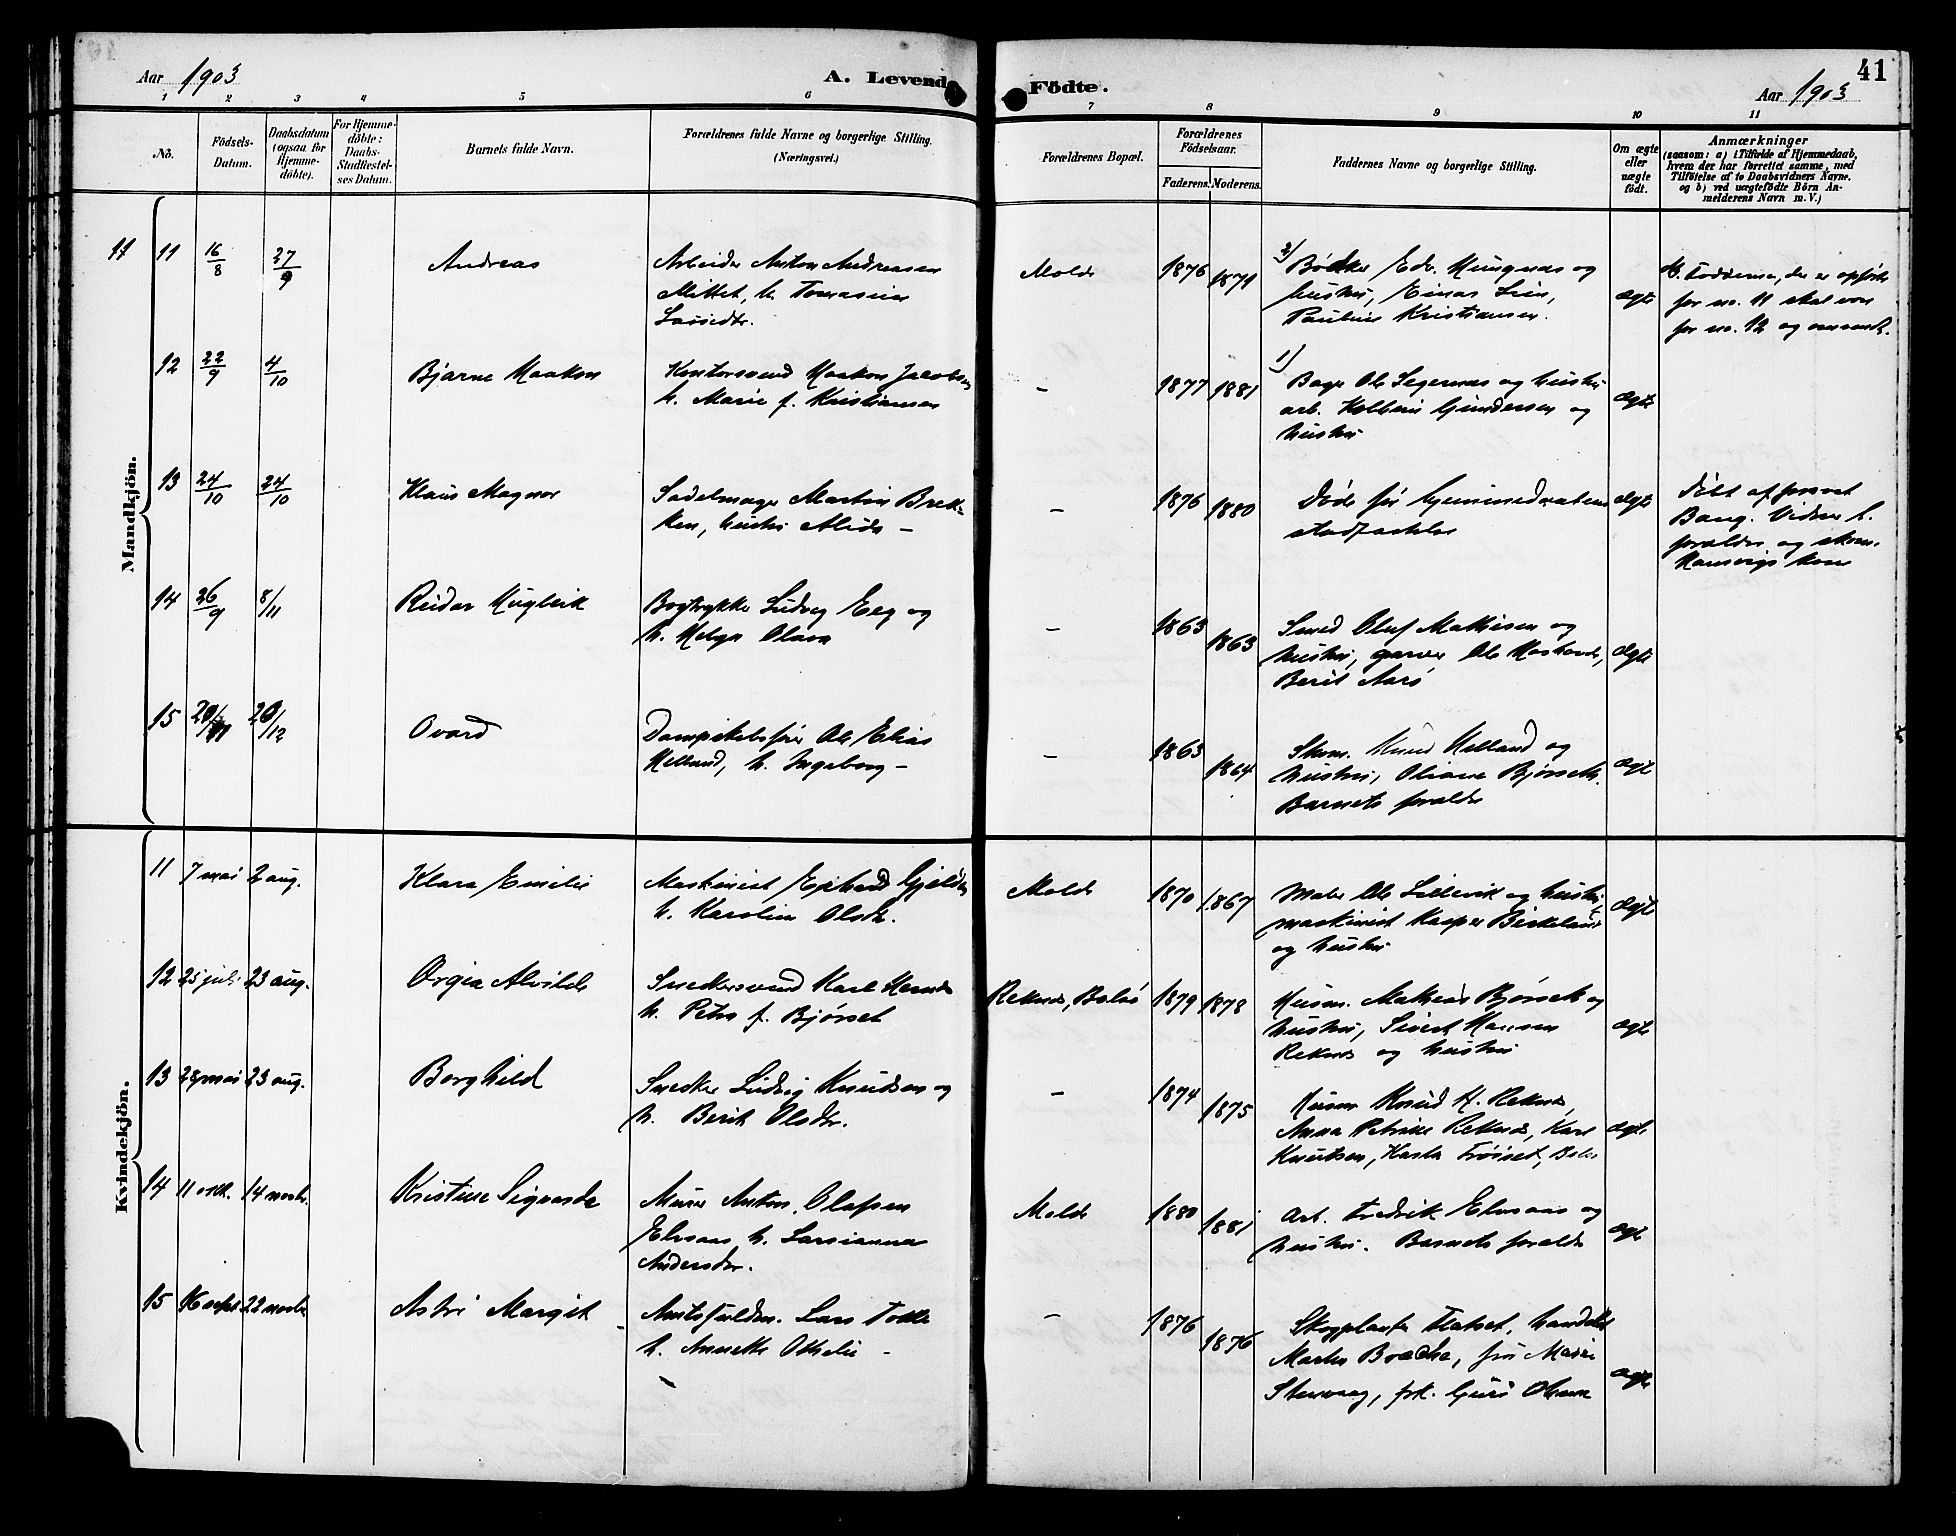 Aar 1903
A. Levende
Födte.
Aar 1903
41
1 2 3 4 5 6 7 8 9 10 11
No.
Födsels-
Datum.
Daabsdatum
(ogsaa for
Hjemme-
döbte).
For Hjemme-
döbte:
Daabs-
Stadfæstel-
ses Datum.
Barnets fulde Navn.
Forældrenes fulde Navne og borgerlige Stilling.
(Næringsvei.)
Forældrenes Bopæl.
Forældrenes
Födselsaar.
Faderens. Moderens.
Faddernes Navne og borgerlige Stilling.
Om ægte
eller
uægte
födt.
Anmærkninger
(saasom: a) i Tilfælde af Hjemmedaab,
hvem der har forrettet samme, med
Tilföielse af to Daabsvidners Navne,
og b) ved uægtefödte Börn An-
melderens Navn m. V.)
Mandkjön.
11 11 16/8 27/9 Andreas
Arbeider Anton Andreasen
Mittet, h. Tomasine
Lassedtr.
Molde 1876 1879
2) Bødker Edv. Hungnes og
hustru, Einar Lien,
Pauline Kristiansen.
ægte
Fadderne, der er opførte
for no. 11 skal være
for no. 12 og omvendt.
12 22/9 4/10 Bjarne Haakon
Kontorsvend Haakon Jacobsen
h. Marie f. Kristiansen
- 1877 1881
1) Bager Ole Segernes og hustru
arb. Kolbein Gundersen og
hustru
ægte
13 24/10 24/10 Klaus Magnor
Sadelmager Martin Brek-
ken, hustru Alida -
- 1876 1880
Døde før hjemmedaaben
stadfæstedes
ægte
Døbt af provst
Bang. Vidner b.
forældre og skom.
Hamsvigs kone
14 26/9 8/11 Reidar Hugleik
Bogtrykker Ludvig Eeg og
h. Helga Olava
- 1863 1863
Smed Oluf Mathisen og
hustru, garver Ole
Berit Aarø
ægte
15 20/11 20/12 Ovard
Dampskibsfører Ole Elias
Helland, h. Ingeborg -
- 1863 1864
Skom. Knud Helland og
hustru, Oliane Bjørseth.
Barnets forældre
ægte
Kvindekjön.
11 7 mai 2 aug. Klara Emilie
Maskinist Gjelsten
h. Karoline Olsdtr.
Molde 1870 1867
Maler Ole Lillevik og hustru
maskinist Kasper Birkeland
og hustru
ægte
12 25 juli 23 aug. Orgia Alvilde
Snedkersvend Karl
h. Petra f. Bjørset
Reknes, Bolsø 1879 1878
Husm. Mathias Bjørset og
hustru, Sivert Hansen
Reknes og hustru
ægte
13 28 mai 23 aug. Borghild
Snedker Ludvig Knudsen og
h. Berit Olsdtr.
- 1874 1875
Husm Knud H. Reknes,
Anna Petrine Reknes, Karl
Knutsen, Bolsø
ægte
14 11 oktb. 14 novbr. Kristine Sigvarda
Murer Anton Olafsen
Elvsaas h. Larsianna
Andersdtr.
Molde 1880 1881
Arb. Fredrik Elvsaas og
hustru. Barnets forældre
ægte
15 16 septb 22 novbr Astri Margit
Amtsfuldm. Lars
h. Annette Othelie -
- 1876 1876
Skogplanter Flatset, handelsb
Martin Brække, fru Marie
Stenvaag, frk. Guri
ægte